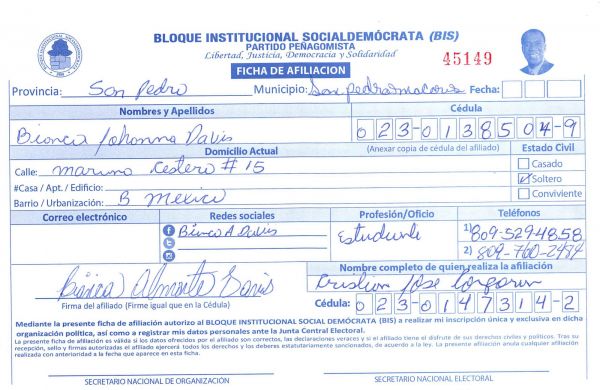 BLOQUE INSTITUCIONAL SOCIALDEMÓCRATA (BIS)
PARTIDO PEÑAGOMISTA
Libertad, Justicia, Democracia y Solidaridad
FICHA DE AFILIACION
45149
Provincia: San Pedro Municipio: San pedro macoris Fecha:
Nombres y Apellidos Cédula
Bianca Johanna Davis 023-0138504-9
Domicilio Actual (Anexar copia de cédula del afiliado) Estado Civil
Calle: Cestero #15 Casado
#Casa / Apt. / Edificio: Soltero
Barrio / Urbanización: B Mexico Conviviente
Correo electrónico Redes sociales Profesión/Oficio Teléfonos
Bianca A Davis Estudiante 1) 809-529-4858
2) 809-760-2484
Bianca Almonte Davis
Nombre completo de quien realiza la afiliación
Cristian Jose
Firma del afiliado (Firme igual que en la Cédula) Cédula: 023-0147314-2
Mediante la presente ficha de afiliación autorizo al BLOQUE INSTITUCIONAL SOCIAL DEMÓCRATA (BIS) a realizar mi inscripción única y exclusiva en dicha
organización política, así como a registrar mis datos personales ante la Junta Central Electoral.
La presente ficha de afiliación es válida si los datos ofrecidos por el afiliado son correctos, las declaraciones veraces y si el afiliado tiene el disfrute de sus derechos civiles y políticos. Tras su
recepción, sello y firmas autorizadas el afiliado ejercerá todos los derechos y los deberes estatutariamente sancionados, de acuerdo a la ley. La presente afiliación anula cualquier afiliación
realizada con anterioridad a la fecha que aparece en esta ficha.
SECRETARIO NACIONAL DE ORGANIZACIÓN SECRETARIO NACIONAL ELECTORAL